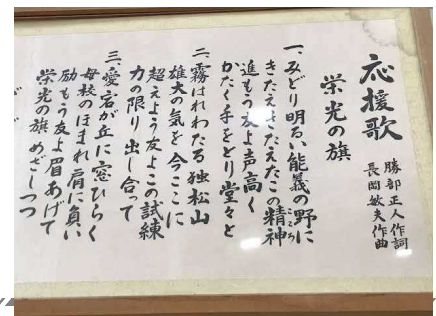 応援歌
栄光の旗
勝部正人作詞
長岡敏夫作曲
一、みどり明るい能義の野に
きたえきたえたこの精神
こころ
進もう友よ声高く
かたく手をとり堂々と
二、霧はれわたる独松山
雄大の気を今ここに
超えよう友よこの試練
力の限り出し合って
三、愛宕が丘に窓ひらく
母校のほまれ肩に負い
励もう友よ眉あげて
栄光の旗めざしつつ